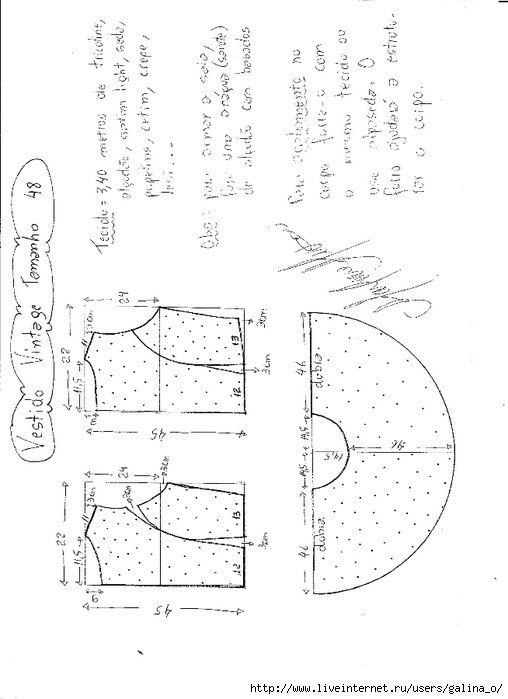 Vestido Vintage Tamanho 48
Tecido = 3,40 metros de
algodão, cetim light, seda,
popeline, cetim, crepe,
Obs: para armar a saia,
faça uma anágua (saiote)
de algodão com babados
Para acabamento no
corpo forre-o com
o mesmo tecido ou
use O
forro ajudará a estrutu-
rar o corpo.
22
11,5
11
6
24
3cm
45
12
13
3cm
22
11,5
11
24
45
12
13
3cm
3cm
46
14,5
14,5
46
dobra
dobra
14,5
46
http://www.liveinternet.ru/users/galina_o/